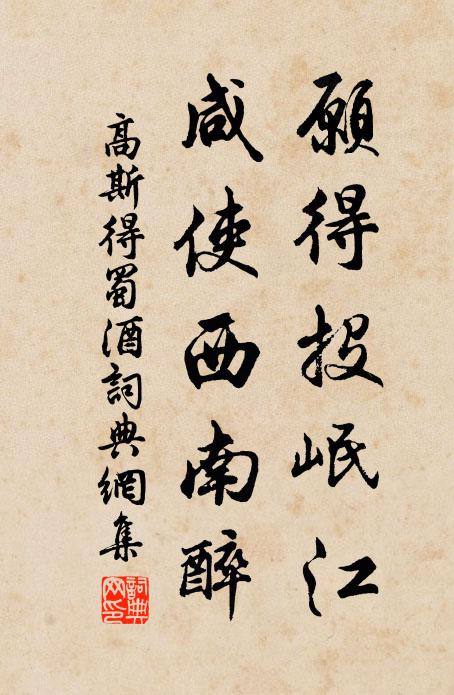 願得投岷江
咸使西南醉
高斯得蜀酒詞典網集
詞典网印